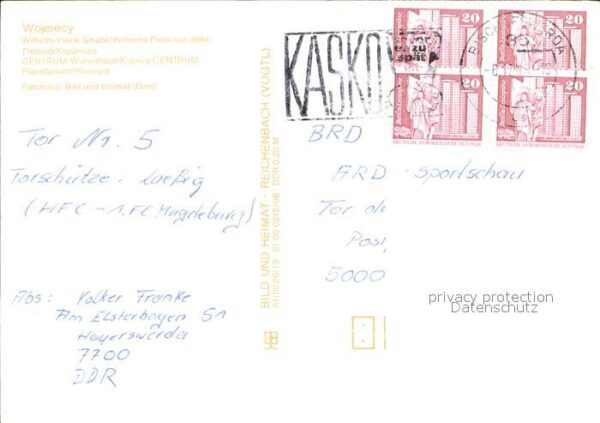 Wojerecy
Wilhelm-Pieck-Straße/Wilhelma Pieckowa dróha
Freibad/Kupanišćo
CENTRUM-Warenhaus/Kupnica CENTRUM
Planetarium/Planetarij
Farbfotos: Bild und Heimat (Dörr)
Tor Nr. 5
Torschütze:
(HFC - 1. FC Magdeburg)
Abs: Volker Franke
Am Elsterbogen 51
Hoyerswerda
7700
DDR
BILD UND HEIMAT · REICHENBACH (VOGTL)
A1/B/20/13 01 06 0215/08 DDR 0,20 M
KASKO
zu
spät
BISCHOFSWERDA
20
20
20
20
Berlin-Leninplatz
Berlin-Leninplatz
DEUTSCHE DEMOKRATISCHE REPUBLIK
DEUTSCHE DEMOKRATISCHE REPUBLIK
BRD
ARD - Sportschau
Tor d
Pos
5000
privacy protection
Datenschutz